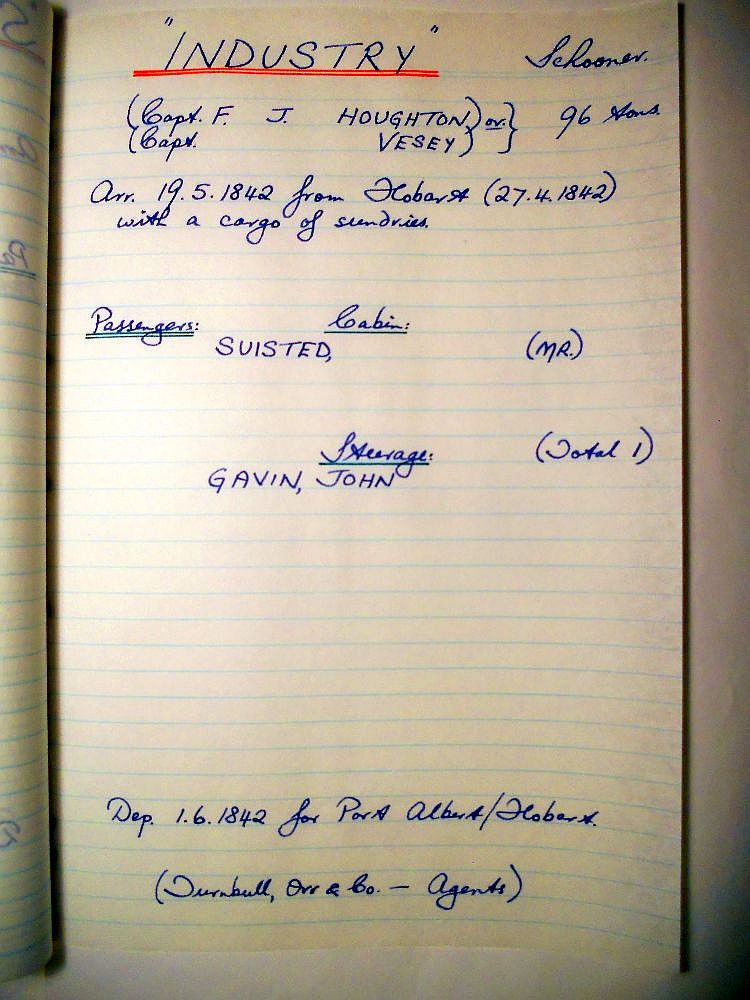 "INDUSTRY" Schooner.
(Capt. F. J. HOUGHTON) or } 96 tons.
(Capt. VESEY)
Arr. 19.5.1842 from Hobart (27.4.1842)
with a cargo of sundries.
Passengers: Cabin:
SUISTED, (MR.)
Steerage: (Total 1)
GAVIN, JOHN
Dep. 1.6.1842 for Port Albert/Hobart.
(Turnbull, Orr & Co. — Agents)